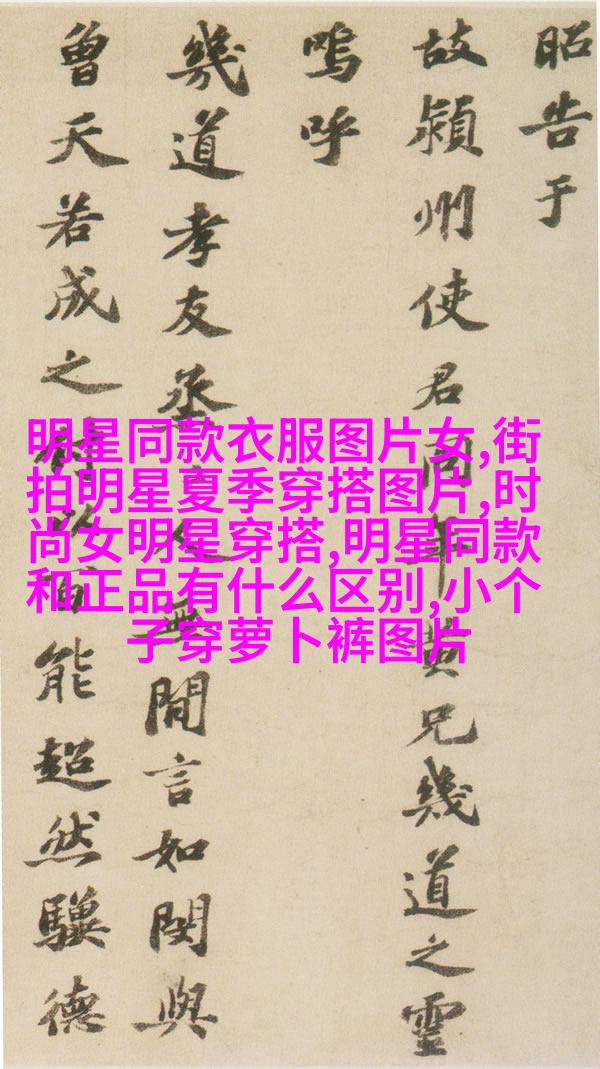 昭告于
故潁州使君同年黄兄幾道之靈
嗚呼
幾道孝友烝烝人無閒言如閔與
曾天若成之付以百能超然驥德
明星同款衣服图片女,街
拍明星夏季穿搭图片,时
尚女明星穿搭,明星同款
和正品有什么区别,小个
子穿萝卜裤图片